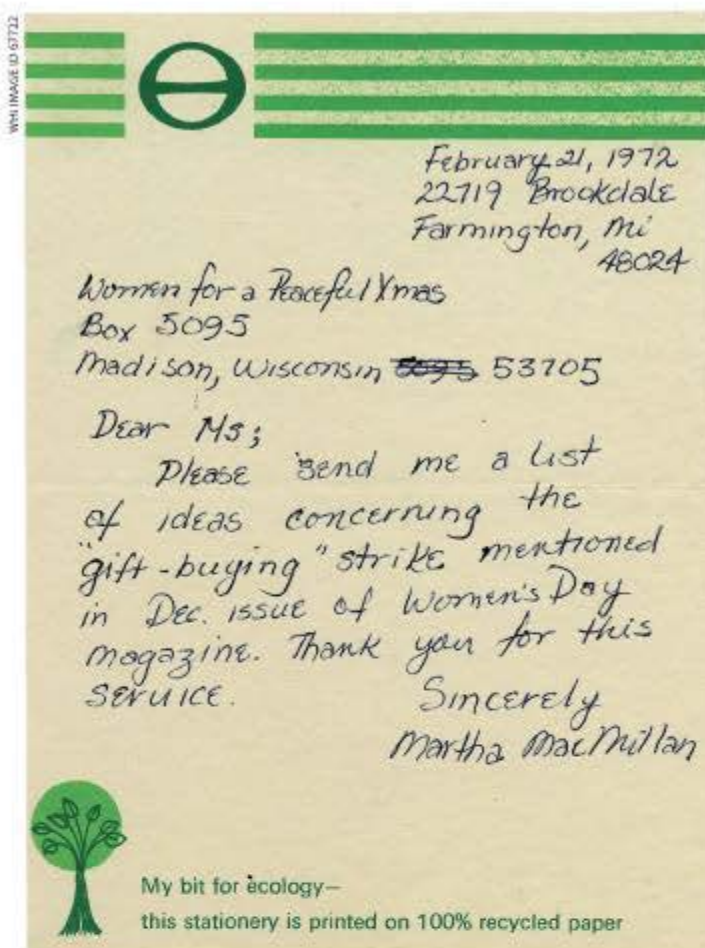 WHI IMAGE ID 67722
February 21, 1972
22719 Brookdale
Farmington, Mi
48024
Women for a Peaceful Xmas
Box 5095
Madison, Wisconsin 5095 53705
Dear Ms;
Please send me a list
of ideas concerning the
"gift-buying" strike mentioned
in Dec. issue of Women's Day
magazine. Thank you for this
service.
Sincerely
Martha MacMillan
My bit for ecology—
this stationery is printed on 100% recycled paper